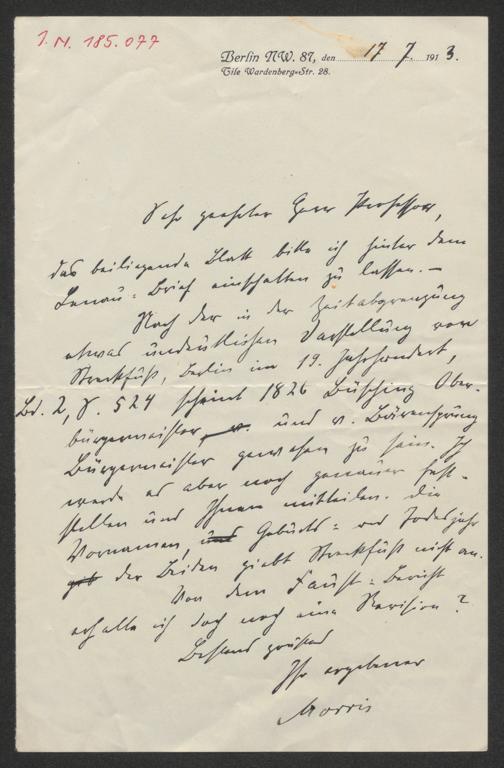 I. N. 185.077
Berlin NW. 87, den 17 7. 1913.
Tile Wardenberg=Str. 28.
Sehr geehrter Herr Professor,
das beiliegende Blatt bitte ich hinter dem
Lenau=Brief einschalten zu lassen. –
Nach der in der Zeitabgrenzung
etwas undeutlichen Darstellung von
Streckfuß, Berlin im 19. Jahrhundert,
Bd. 2, S. 524 scheint 1826 Büsching Ober-
bürgermeister, v. und v. Bärensprung
Bürgermeister gewesen zu sein. Ich
werde es aber noch genauer fest-
stellen und Ihnen mitteilen. Die
Vornamen, und Geburts= und Todesjahr
der Beiden giebt Streckfuß nicht an.
Von dem Faust=Bericht
erhalte ich doch noch eine Revision?
Bestens grüßend
Ihr ergebener
Morris